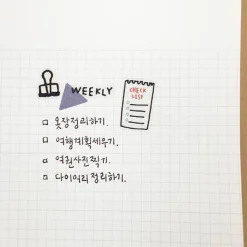 WEEKLY
CHECK
LIST
옷장정리하기.
여행계획세우기.
여권사진찍기.
다이어리정리하기.